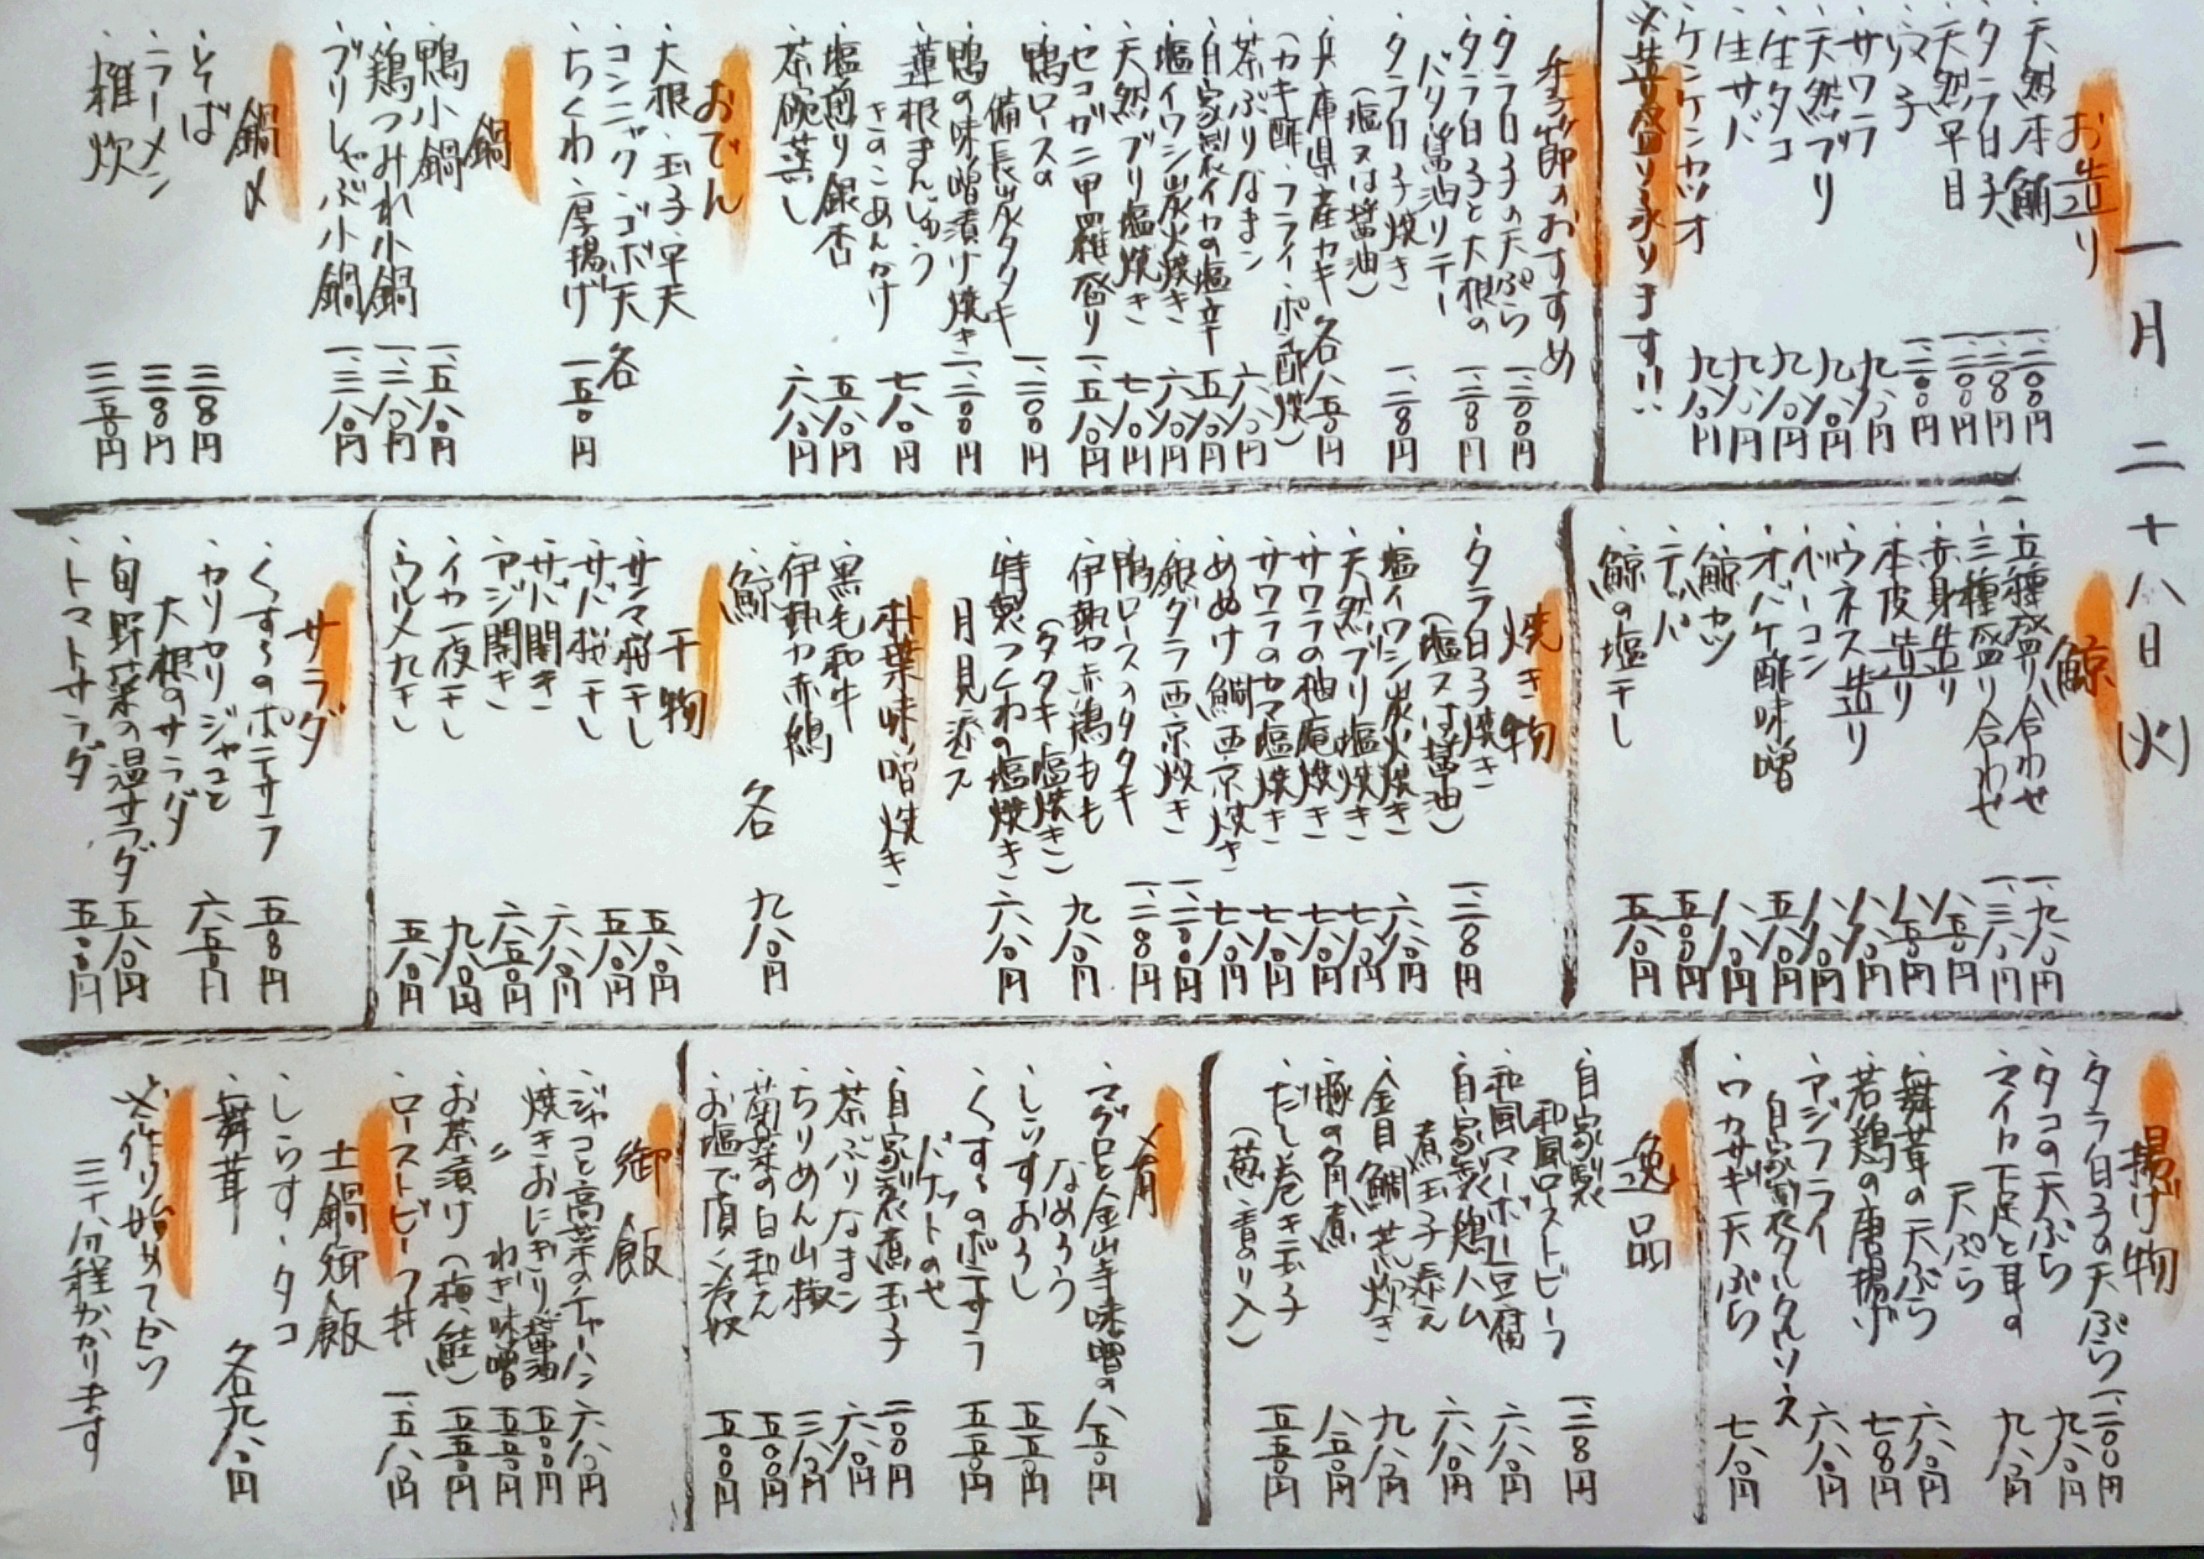 一月二十八日(火)
お造り
・天然本鮪 一、二〇〇円
・タラ白子 一、二〇〇円
・天然早目 一、二〇〇円
・マリ子 一、二〇〇円
・サワラ 九八〇円
・天然ブリ 九八〇円
・生タコ 九八〇円
・生サバ 九八〇円
・ケンケンカツオ 九八〇円
※造り盛り承ります!!
季節のおすすめ
・タラ白子の天ぷら 一、二〇〇円
・タラ白子と大根の
バタ醤油ソテー 一、二〇〇円
・タラ白子焼き
(塩又は醤油) 一、二〇〇円
・兵庫県産カキ 各八五〇円
(カキ酢・フライ・ポン酢焼)
・茶ぶりなまこ 六八〇円
・自家製イカの塩辛 五八〇円
・塩イワシ炭火焼き 六八〇円
・天然ブリ塩焼き 七八〇円
・セコガニ甲羅盛り 一、五八〇円
・鴨ロースの
備長炭タタキ 一、二〇〇円
・鴨の味噌漬け焼き 一、二〇〇円
・蓮根まんじゅう
きのこあんかけ 七八〇円
・塩煎り銀杏 五八〇円
・茶碗蒸し 六八〇円
おでん
・大根・玉子・平天
・コンニャク・ゴボ天 各
・ちくわ・厚揚げ 一五〇円
鍋
・鴨小鍋 一、五八〇円
・鶏つみれ小鍋 一、三八〇円
・ブリしゃぶ小鍋 一、三八〇円
鍋〆
・そば 三〇〇円
・ラーメン 三〇〇円
・雑炊 三五〇円
鯨
・五種盛り合わせ 一、九八〇円
・三種盛り合わせ 一、三八〇円
・赤身造り 八五〇円
・本皮造り 八五〇円
・ウネス造り 八八〇円
・ベーコン 八八〇円
・オバケ酢味噌 五八〇円
・鯨カツ 八八〇円
・テッパ 五五〇円
・鯨の塩干し 五八〇円
焼き物
・タラ白子焼き
(塩又は醤油) 一、二〇〇円
・塩イワシ炭火焼き 六八〇円
・天然ブリ塩焼き 七八〇円
・サワラの柚庵焼き 七八〇円
・サワラのカマ塩焼き 七八〇円
・めぬけ鯛西京焼き 七八〇円
・銀ダラ西京焼き 一、二〇〇円
・鴨ロースのタタキ 一、二〇〇円
・伊勢赤鶏もも
(タタキ・塩焼き) 九八〇円
・特製つくねの塩焼き 六八〇円
月見添え
朴葉味噌焼き
・黒毛和牛
・伊勢赤鶏
・鯨 各 九八〇円
干物
・サンマ桜干し 五八〇円
・サバ桜干し 五八〇円
・サバ開き 六八〇円
・アジ開き 六五〇円
・イカ一夜干し 九八〇円
・ウルメ丸干し 五八〇円
サラダ
・くずしのポテサラ 五五〇円
・カリカリジャコと
大根のサラダ 六五〇円
・旬野菜の温サラダ 五八〇円
・トマトサラダ 五〇〇円
揚げ物
・タラ白子の天ぷら 一、二〇〇円
・タコの天ぷら 九八〇円
・マイカ下足と耳の
天ぷら 九八〇円
・舞茸の天ぷら 六八〇円
・若鶏の唐揚げ 七八〇円
・アジフライ
自家製タルタルソース 六八〇円
・ワカサギ天ぷら 七八〇円
逸品
・自家製
和風ローストビーフ 一、二〇〇円
・和風マーボー豆腐 六八〇円
・自家製鶏ハム
煮玉子添え 六八〇円
・金目鯛荒炊き 九八〇円
・豚の角煮 八五〇円
・だし巻き玉子
(葱・青のり入) 五五〇円
肴
・マグロと金山寺味噌の
なめろう 八五〇円
・しらすおろし 五五〇円
・くずしのポテサラ
バケットのせ 五五〇円
・自家製煮玉子 二〇〇円
・茶ぶりなまこ 六八〇円
・ちりめん山椒 三八〇円
・菊菜の白和え 五五〇円
・お塩で頂く冷奴 五五〇円
御飯
・ジャコと高菜のチャーハン 六八〇円
・焼きおにぎり醤油 五〇〇円
〃 ねぎ味噌 五五〇円
・お茶漬け(梅、鮭) 五五〇円
・ローストビーフ丼 一、五八〇円
土鍋御飯
・しらす・タコ
・舞茸 各九八〇円
※作り始めてから
三十分程かかります